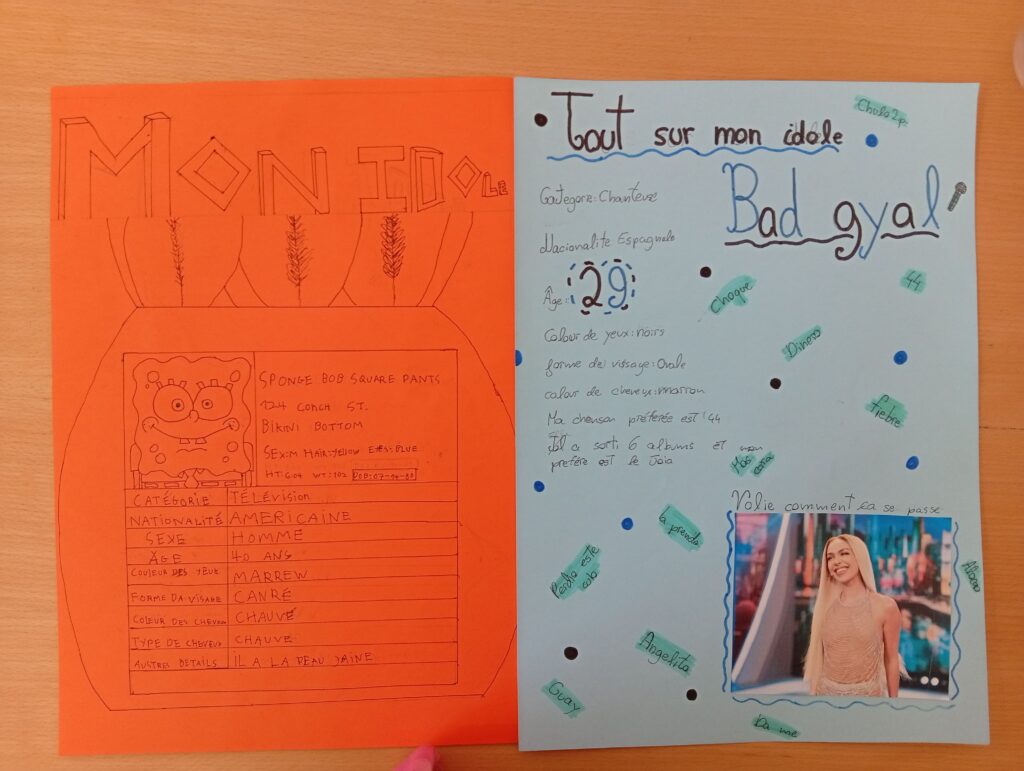 MON IDOLE
SPONGE BOB SQUARE PANTS
124 CONCH ST.
BIKINI BOTTOM
SEX:M HAIR:YELLOW EYES:BLUE
HT:6.04 WT:102 DOB:07-04-80
CATÉGORIE TÉLÉVISION
NATIONALITÉ AMERICAINE
SEXE HOMME
ÂGE 40 ANS
COULEUR DES YEUX MARREW
FORME DA VISAGE CANRÉ
COLEUR DES CHEVEU CHAUVÉ
TYPE DE CHEVEUX CHAUVE
AUSTRES DETAILS IL A LA PEAU JAINE
Tout sur mon idole
Bad gyal
Nacionalité Espagnole
Âge: 29
Colour de yeux: noirs
forme de vissage: Ovale
colour de cheveux: marron
Ma chanson préférée est '44
Il a sorti 6 albums et mon
préféré est le Joia
Chulo 2p.
44
Choque
Dinero
fiebre
Más cara
la prendo
Perdío este
culo
Angelito
Guay
Da me